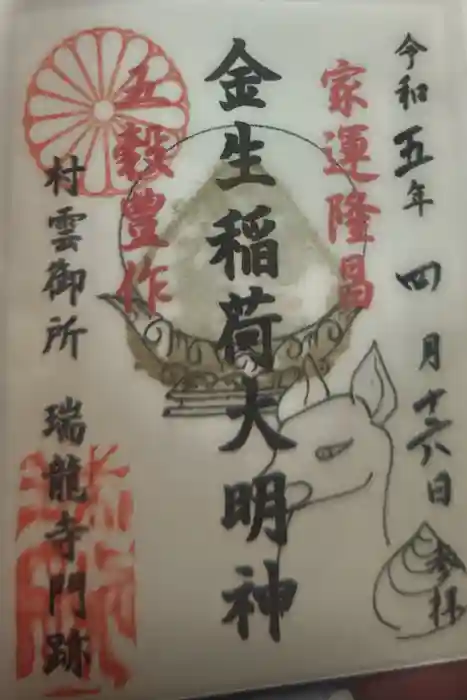 令和五年 四月十六日
参拝
家運隆昌
金生稲荷大明神
五穀豊作
村雲御所 瑞龍寺門跡